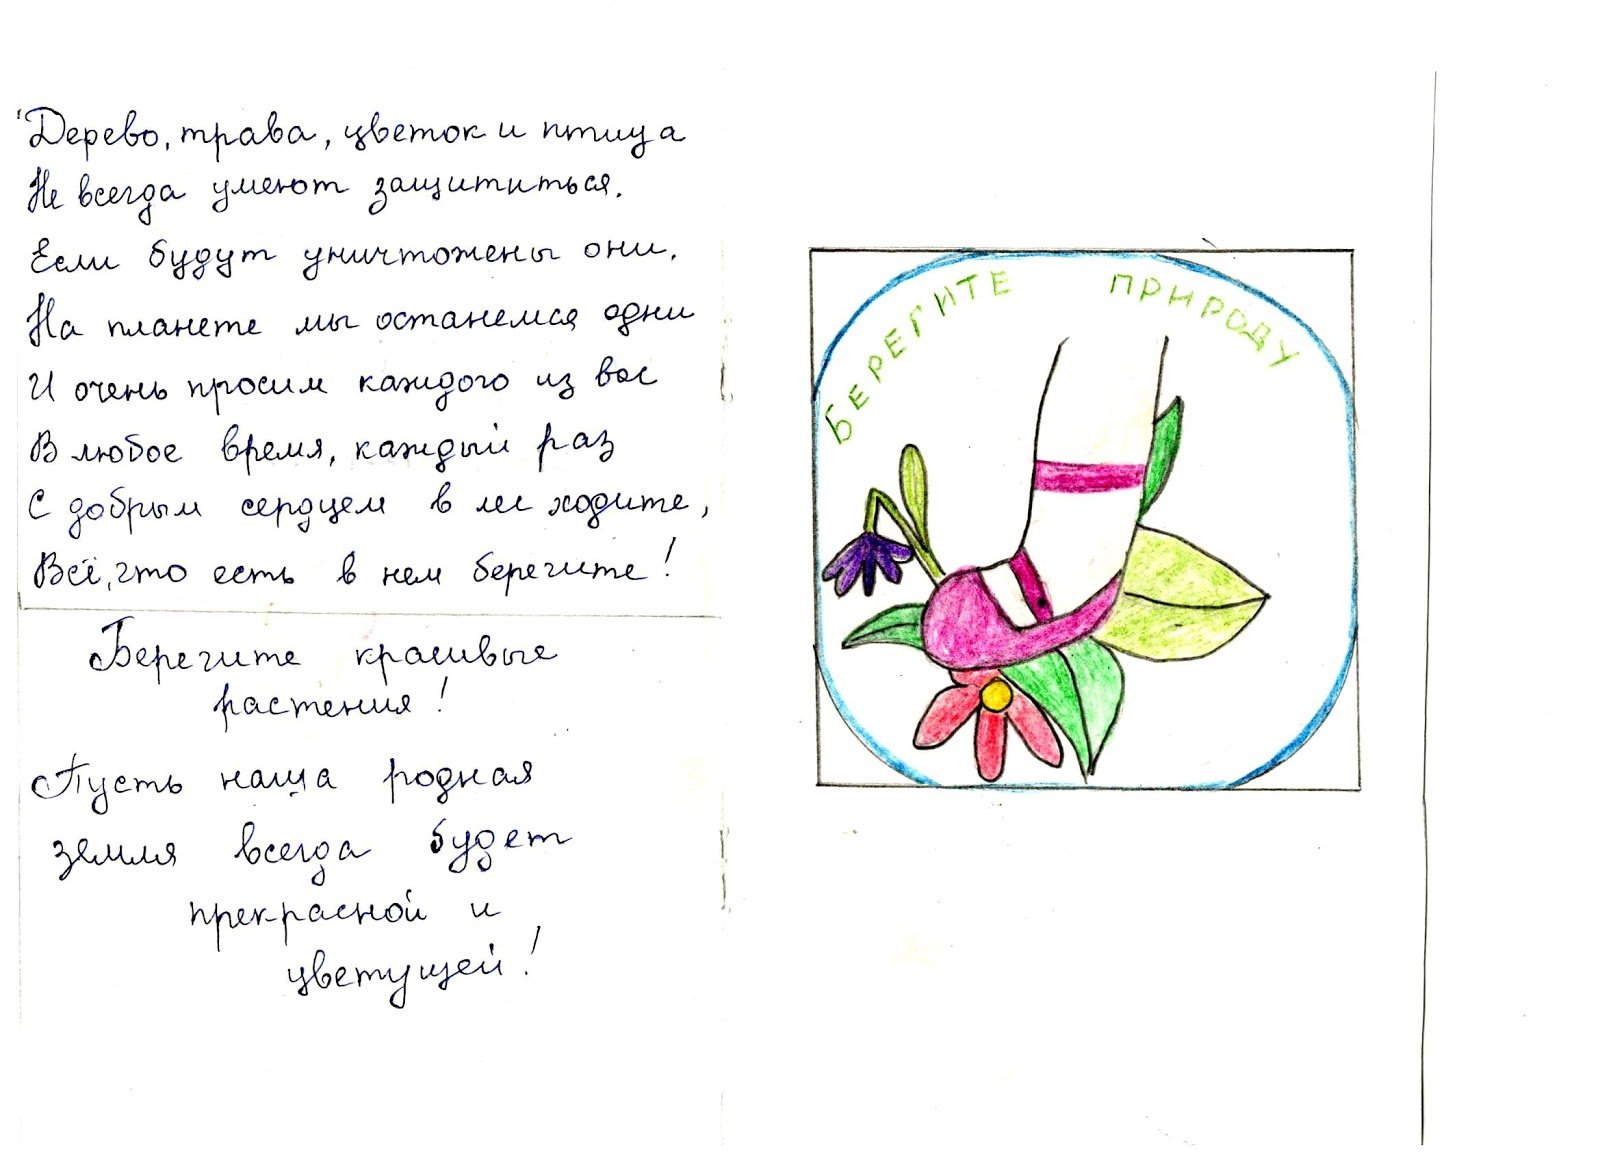 Дерево, трава, цветок и птица
Не всегда умеют защититься.
Если будут уничтожены они,
На планете мы останемся одни
И очень просим каждого из вас
В любое время, каждый раз
С добрым сердцем в лес ходите,
Всё, что есть в нем берегите!
Берегите красивые
растения!
Пусть наша родная
земля всегда будет
прекрасной и
цветущей!
БЕРЕГИТЕ ПРИРОДУ